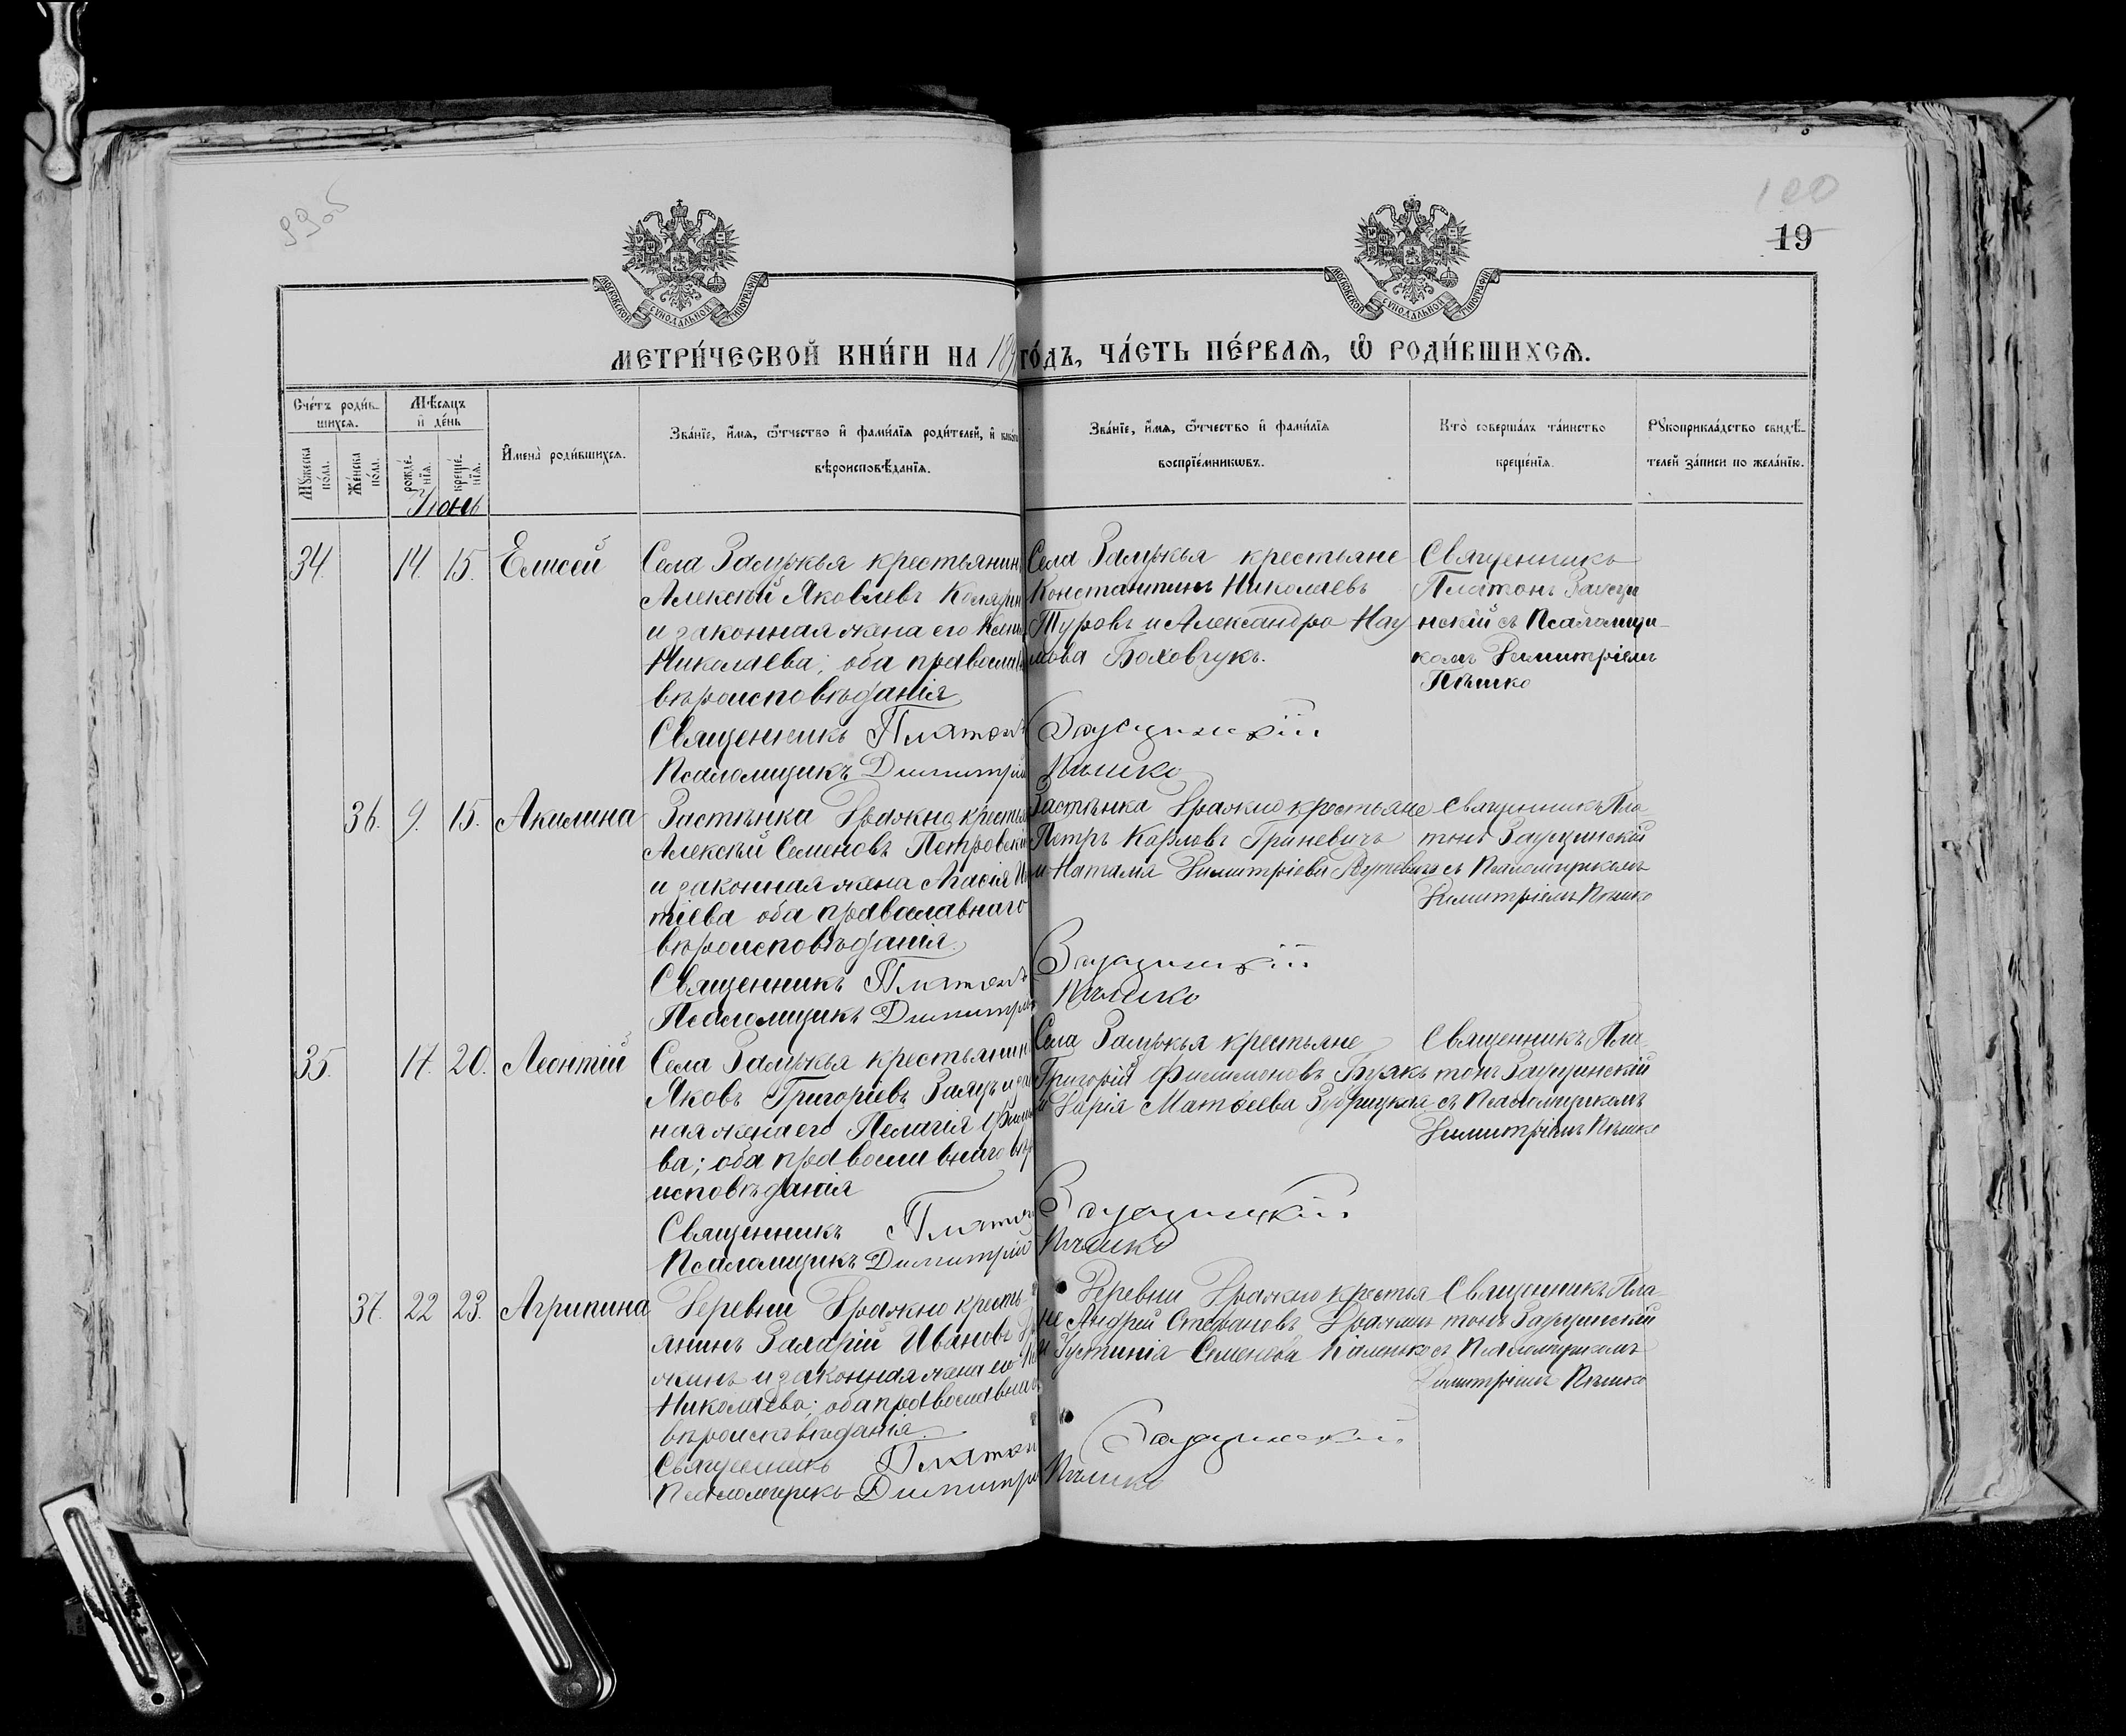 100
19
МОСКОВСКОЙ СѴНОДАЛЬНОЙ ТИПОГРАФІИ
МОСКОВСКОЙ СѴНОДАЛЬНОЙ ТИПОГРАФІИ
МЕТРИ́ЧЕСКОЙ КНИ́ГИ НА 189 ГО́ДЪ, ЧА́СТЬ ПЕ́РВАѦ, Ѽ РОДИ́ВШИХСѦ.
Сче́тъ роди́в-
шихсѧ.
Мꙋ́жеска по́ла.
Же́нска по́ла.
Мѣ́сѧцъ
и҆ де́нь
рожде́-нїѧ.
креще́-нїѧ.
И҆мена̀ роди́вшихсѧ.
Зва́нїе, и҆́мѧ, ѻ҆́тчество и҆ фами́лїѧ роди́телей, и҆
вѣроисповѣ́данїѧ.
Зва́нїе, и҆́мѧ, ѻ҆́тчество и҆ фами́лїѧ
воспрїе́мникѡвъ.
Кто̀ соверша́лъ та́инство
креще́нїѧ.
Рꙋкоприкла́дство свидѣ́-
телей за́писи по жела́нїю.
Іюнь
34. 14. 15. Елисей
Села Замужья крестьянин
Алексѣй Яковлевъ
и законная жена его
Николаева; оба православ
вѣроисповѣданія
Священникъ Платонъ
Псаломщикъ Димитрій Пѣшко
Села Замужья крестьяне
Константинъ Николаевъ
Туровъ и Александра Нау
мова Боховчукъ.
Священникъ
Платонъ
нскій съ Псаломщи-
комъ Димитріемъ
Пѣшко
36. 9. 15. Акилина
Застѣнка Дражно крестья
Алексѣй Семеновъ Петровскі
и законная жена
тіева оба православнаго
вѣроисповѣданія.
Священникъ Платонъ
Псаломщикъ Димитрій Пѣшко
Застѣнка Дражно крестьяне
Петръ Карловъ Гриневичъ
и Наталія Димитріева
Священникъ Пла
тонъ
съ Псаломщикомъ
Димитріемъ Пѣшко
35. 17. 20. Леонтій
Села Замужья крестьянин
Яковъ Григоріевъ Заяцъ и зак
ная жена его Пелагія
ва; оба православнаго вѣро
исповѣданія
Священникъ Платонъ
Псаломщикъ Димитрій Пѣшко
Села Замужья крестьяне
Григорій Филимоновъ Буякъ
и Дарія Матѳеева Зубрицкая
Священникъ Пла-
тонъ
съ Псаломщикомъ
Димитріемъ Пѣшко
37. 22 23. Агрипина
Деревни Дражно кресть-
янинъ Захарій Ивановъ Дра
жинъ и законная жена его
Николаева; оба православна
вѣроисповѣданія.
Священникъ Платон
Псаломщикъ Димитрі Пѣшко
Деревни Дражно крестья
не Андрей Стефановъ Дражинъ
и Іустинія Семенова
Священникъ Пла-
тонъ
съ Псаломщикомъ
Димитріемъ Пѣшко